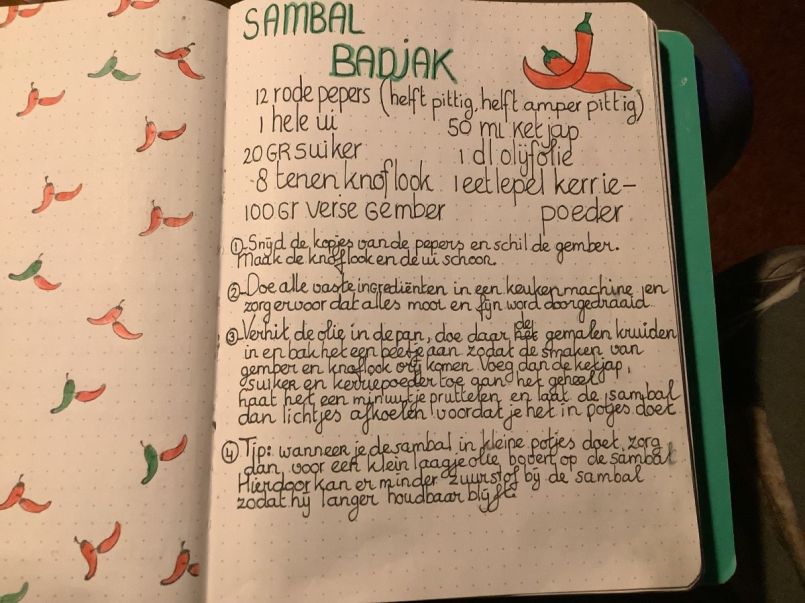 SAMBAL
BADJAK
12 rode pepers (helft pittig, helft amper pittig)
1 hele ui
50 ml ketjap
20 GR suiker
1 dl olijfolie
8 tenen knoflook
1 eetlepel kerrie-
poeder
100 Gr verse Gember
① Snijd de kopjes van de pepers en schil de gember.
Maak de knoflook en de ui schoon.
② Doe alle vaste ingrediënten in een keukenmachine en
zorg ervoor dat alles mooi en fijn word doorgedraaid.
③ Verhit de olie in de pan, doe daar de gemalen kruiden
in en bak het een beetje aan zodat de smaken van
gember en knoflook vrij komen. Voeg dan de ketjap,
suiker en kerriepoeder toe aan het geheel
laat het een minuutje pruttelen en laat de sambal
dan lichtjes afkoelen voordat je het in potjes doet
④ Tip: wanneer je de sambal in kleine potjes doet, zorg
dan voor een klein laagje olie boven op de sambal
Hierdoor kan er minder zuurstof bij de sambal
zodat hij langer houdbaar blijft.